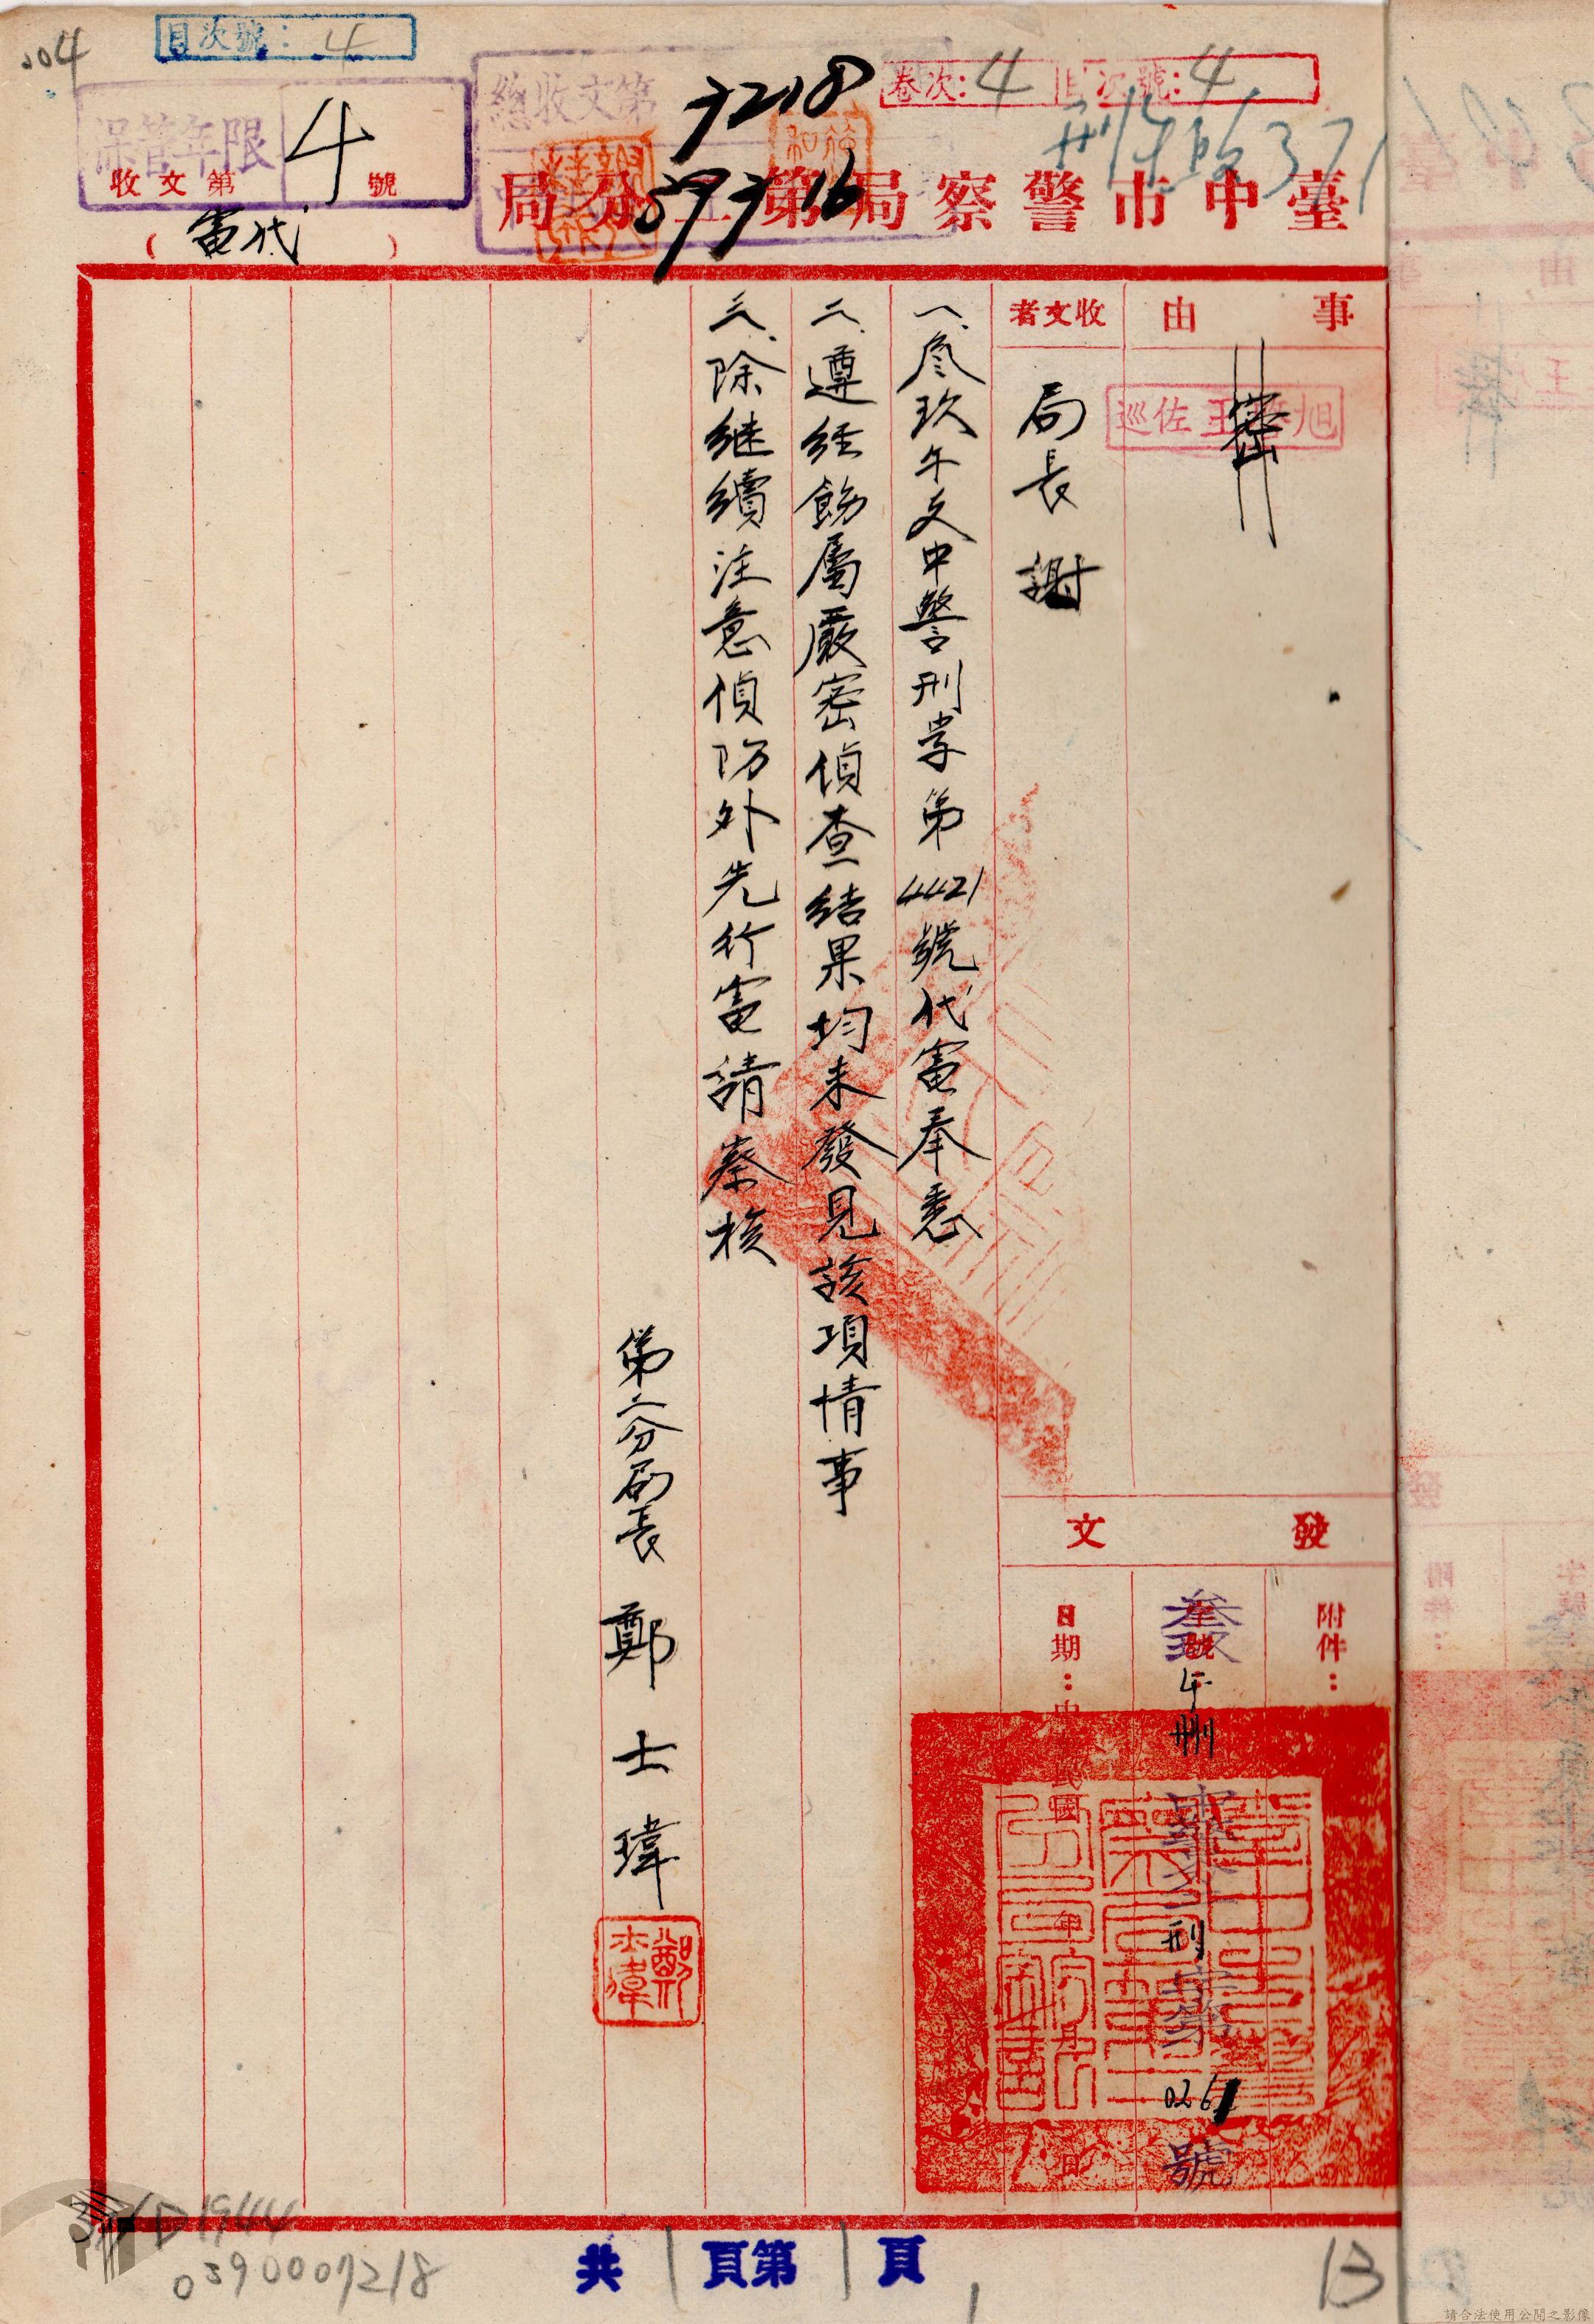 204
目次號：4
卷次：4 目次號：4
保管年限 4
總收文第
7218
39 7 16
收文第 號
（代電）
臺中市警察局第二分局
事由
密
巡佐王
收文者
局長 謝
一、叁玖午文中警刑孝第4421號代電奉悉
二、遵經飭屬嚴密偵查結果均未發見該項情事
三、除繼續注意偵防外先行電請察核
第二分局長 鄭士瑋
鄭士瑋
發文
附件：
叁玖午刪
刑字第0261號
日期：中 民國 年 月 日
共1頁第1頁
13
0390007218
請合法使用公開之影像